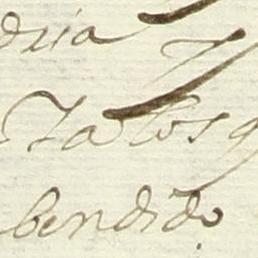 dria
Talos q
bendido